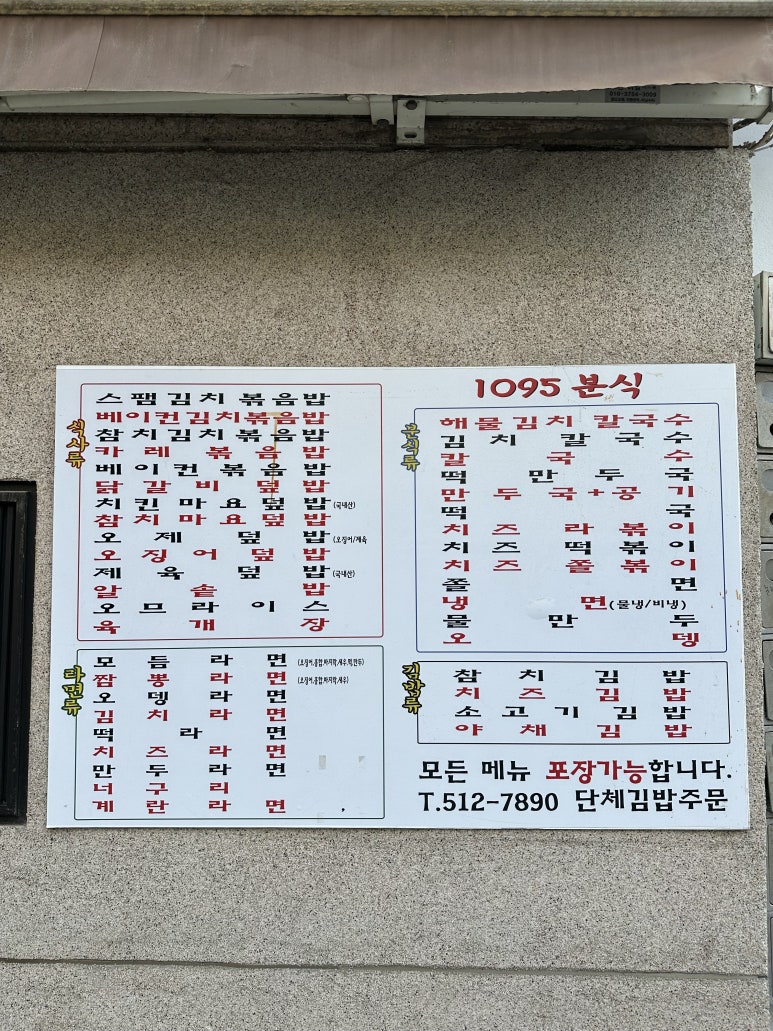 1095 분식
식사류
스팸김치볶음밥
베이컨김치볶음밥
참치김치볶음밥
카레볶음밥
베이컨볶음밥
닭갈비덮밥
치킨마요덮밥(국내산)
참치마요덮밥
오제덮밥(오징어/제육
오징어덮밥
제육덮밥(국내산)
알솥밥
오므라이스
육개장
라면류
모듬라면
짬뽕라면
오뎅라면
김치라면
떡라면
치즈라면
만두라면
너구리
계란라면
분식류
해물김치칼국수
김치칼국수
칼국수
떡만두국
만두국+공기
떡국
치즈라볶이
치즈떡볶이
치즈쫄볶이
쫄면
냉면(물냉/비냉)
물만두
오뎅
김밥류
참치김밥
치즈김밥
소고기김밥
야채김밥
모든 메뉴 포장가능합니다.
T.512-7890 단체김밥주문